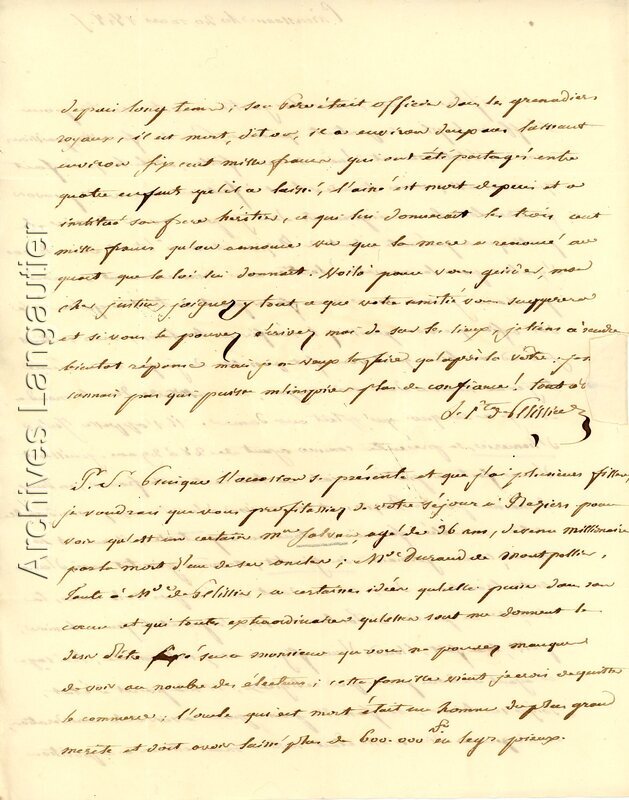 depuis long tems ; son pere était officier dans les grenadiers
royaux, il est mort, dit on, il a environ douze ans laissant
environ six cent mille francs qui ont été partagés entre
quatre enfants qu'il a laissé, l'ainé est mort depuis et a
institué son frere héritier, ce qui lui donnerait les trois cent
mille francs qu'on annonce vu que la mere a renoncé au
quart que la loi lui donnait. Voilà pour vous guider, mon
cher justin, joignez y tout ce que votre amitié vous suggerera
et si vous le pouvez écrivez moi de sur les lieux, je tiens à rendre
bientot réponse mais je ne veux la faire qu'après la votre ; je n'en
connais pas qui puisse m'inspirer plus de confiance ! tout à v
de Pélissier
P. S. Puisque l'occasion se présente et que j'ai plusieurs filles,
je voudrais que vous profitassiez de votre séjour à Beziers pour
voir qu'est un certain mr Salvan, agé de 36 ans, devenu millionaire
par la mort d'un de ses oncles ; Me Durand de montpellier,
tante à Me de Pélissier, a certaines idées qu'elle puise dans son
cœur et qui toutes extraordinaires qu'elles sont me donnent le
desir d'être fixé sur ce monsieur qu'vous ne pouvez manquer
de voir au nombre des électeurs ; cette famille vient je crois de quitter
le commerce ; l'oncle qui est mort était un homme du plus grand
merite et doit avoir laissé plus de 600.000 f en legs pieux.
Archives Langautier